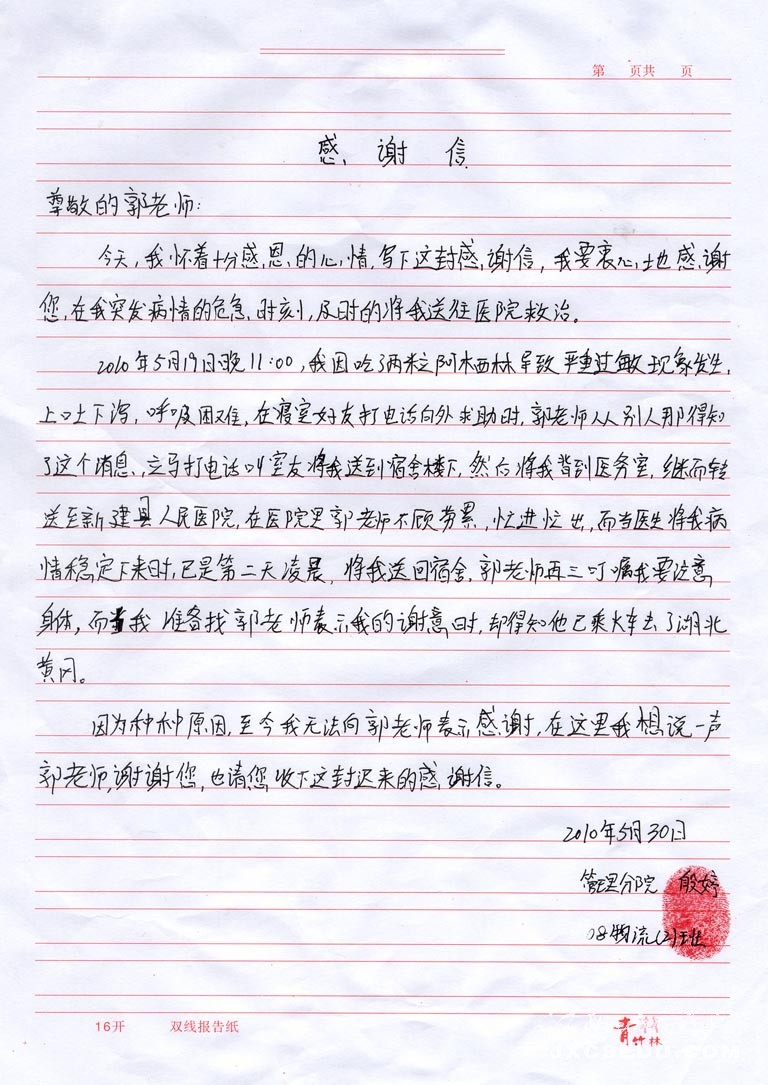 第 页共 页
感 谢 信
尊敬的郭老师:
今天,我怀着十分感恩的心情,写下这封感谢信,我要衷心地感谢
您,在我突发病情的危急时刻,及时的将我送往医院救治。
2010年5月19日晚11:00,我因吃了两粒阿木西林导致严重过敏现象发生,
上吐下泻,呼吸困难,在寝室好友打电话向外求助时,郭老师从别人那得知
了这个消息,立马打电话叫室友将我送到宿舍楼下,然后将我背到医务室,继而转
送至新建县人民医院,在医院里郭老师不顾劳累,忙进忙出,而当医生将我病
情稳定下来时,已是第二天凌晨,将我送回宿舍,郭老师再三叮嘱我要注意
身体,而当我准备找郭老师表示我的谢意时,却得知他已乘火车去了湖北
黄冈。
因为种种原因,至今我无法向郭老师表示感谢,在这里我想说一声
郭老师,谢谢您,也请您收下这封迟来的感谢信。
2010年5月30日
管理分院 殷婷
08物流(2)班
16开 双线报告纸
青竹林